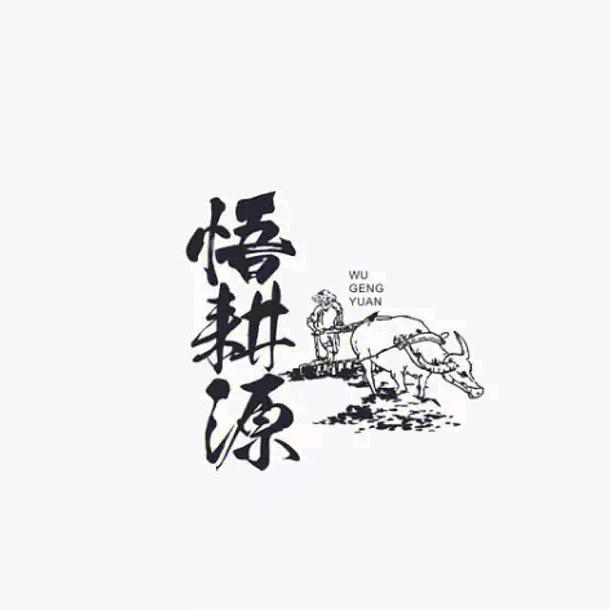 悟耕源
WU
GENG
YUAN